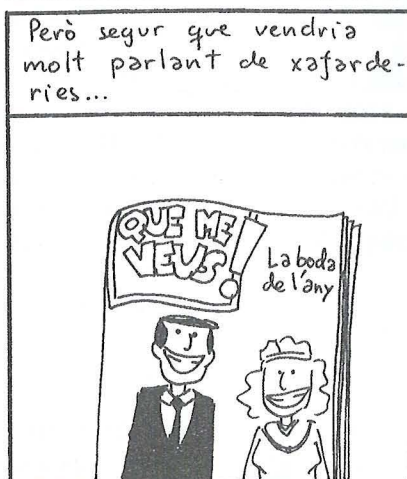 Però segur que vendria
molt parlant de xafarde-
ries...
QUE ME
VEUS!
La boda
de l'any